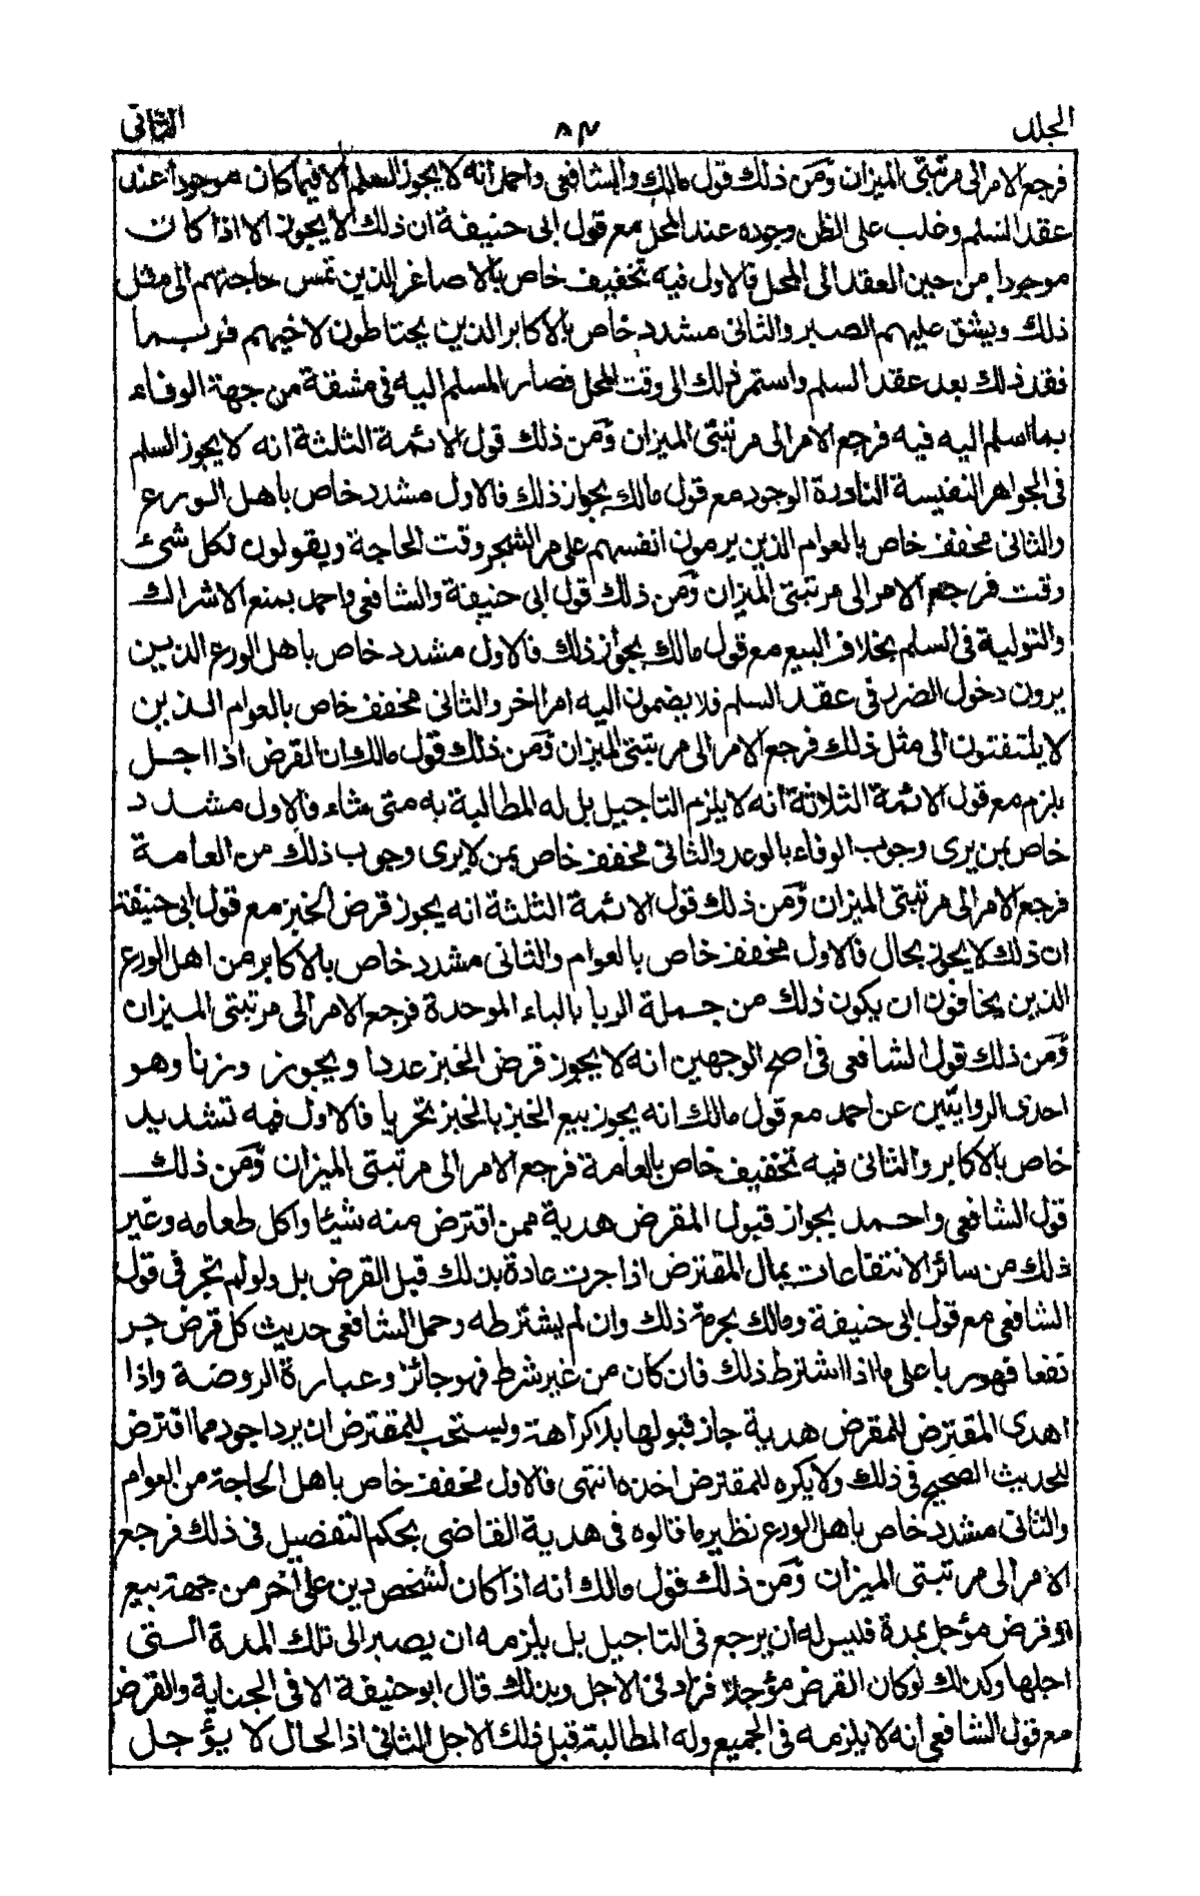 الجلد ٨٣ الثانى
فرجع الامر الى مرتبتى الميزان ومن ذلك قول مالك والشافعى واحمد انه لا يجوز السلم الا فيما كان موجودا عند
عقد السلم وغلب على الظن وجوده عند المحل مع قول ابى حنيفة ان ذلك لا يجوز الا اذا كان
موجودا من حين العقد الى المحل فالاول فيه تخفيف خاص بالاصاغر الذين تمس حاجتهم الى مثل
ذلك ويشق عليهم الصبر والثانى مشدد خاص بالاكابر الذين يحتاطون لاخيهم فربما
فقد ذلك بعد عقد السلم واستمر ذلك الى وقت المحل فصار المسلم اليه فى مشقة من جهة الوفاء
بما اسلم اليه فيه فرجع الامر الى مرتبتى الميزان ومن ذلك قول الائمة الثلثة انه لا يجوز السلم
فى الجواهر النفيسة النادرة الوجود مع قول مالك بجواز ذلك فالاول مشدد خاص باهل الورع
والثانى مخفف خاص بالعوام الذين يرمون انفسهم على مر الشجر وقت الحاجة ويقولون لكل شئ
وقت فرجع الامر الى مرتبتى الميزان ومن ذلك قول ابى حنيفة والشافعى واحمد بمنع الاشراك
والتولية فى السلم بخلاف البيع مع قول مالك بجواز ذلك فالاول مشدد خاص باهل الورع الذين
يرون دخول الضرر فى عقد السلم فلا يضمون اليه امرا اخر والثانى مخفف خاص بالعوام الذين
لا يلتفتون الى مثل ذلك فرجع الامر الى مرتبتى الميزان ومن ذلك قول مالك ان القرض اذا اجل
يلزم مع قول الائمة الثلاثة انه لا يلزم التاجيل بل له المطالبة به متى شاء فالاول مشدد
خاص بمن يرى وجوب الوفاء بالوعد والثانى مخفف خاص بمن لا يرى وجوب ذلك من العامة
فرجع الامر الى مرتبتى الميزان ومن ذلك قول الائمة الثلثة انه يجوز قرض الخبز مع قول ابى حنيفة
ان ذلك لا يجوز بحال فالاول مخفف خاص بالعوام والثانى مشدد خاص بالاكابر من اهل الورع
الذين يخافون ان يكون ذلك من جملة الربا بالباء الموحدة فرجع الامر الى مرتبتى الميزان
ومن ذلك قول الشافعى فى اصح الوجهين انه لا يجوز قرض الخبز عددا ويجوز وزنا وهو
احدى الروايتين عن احمد مع قول مالك انه يجوز بيع الخبز بالخبز تحريا فالاول فيه تشديد
خاص بالاكابر والثانى فيه تخفيف خاص بالعامة فرجع الامر الى مرتبتى الميزان ومن ذلك
قول الشافعى واحمد بجواز قبول المقرض هدية ممن اقترض منه شيئا واكل طعامه وغير
ذلك من سائر الانتفاعات بمال المقترض اذا جرت عادة بذلك قبل القرض بل ولو لم تجر فى قول
الشافعى مع قول ابى حنيفة ومالك بحرمة ذلك وان لم يشترطه وحمل الشافعى حديث كل قرض جر
نفعا فهو ربا على ما اذا اشترط ذلك فان كان من غير شرط فهو جائز وعبارة الروضة واذا
اهدى المقترض للمقرض هدية جاز قبولها بلا كراهة ويستحب للمقترض ان يرد اجود مما اقترض
للحديث الصحيح فى ذلك ولا يكره للمقترض اخذه انتهى فالاول مخفف خاص باهل الحاجة من العوام
والثانى مشدد خاص باهل الورع نظير ما قالوه فى هدية القاضى بحكم التفصيل فى ذلك فرجع
الامر الى مرتبتى الميزان ومن ذلك قول مالك انه اذا كان لشخص دين على آخر من جهة بيع
او قرض مؤجل بمدة فليس له ان يرجع فى التاجيل بل يلزمه ان يصبر الى تلك المدة التى
اجلها وكذلك لو كان القرض مؤجلا فزاد فى الاجل وبذلك قال ابو حنيفة الا فى الجناية والقرض
مع قول الشافعى انه لا يلزمه فى الجميع وله المطالبة قبل ذلك الاجل الثانى اذ الحال لا يؤجل